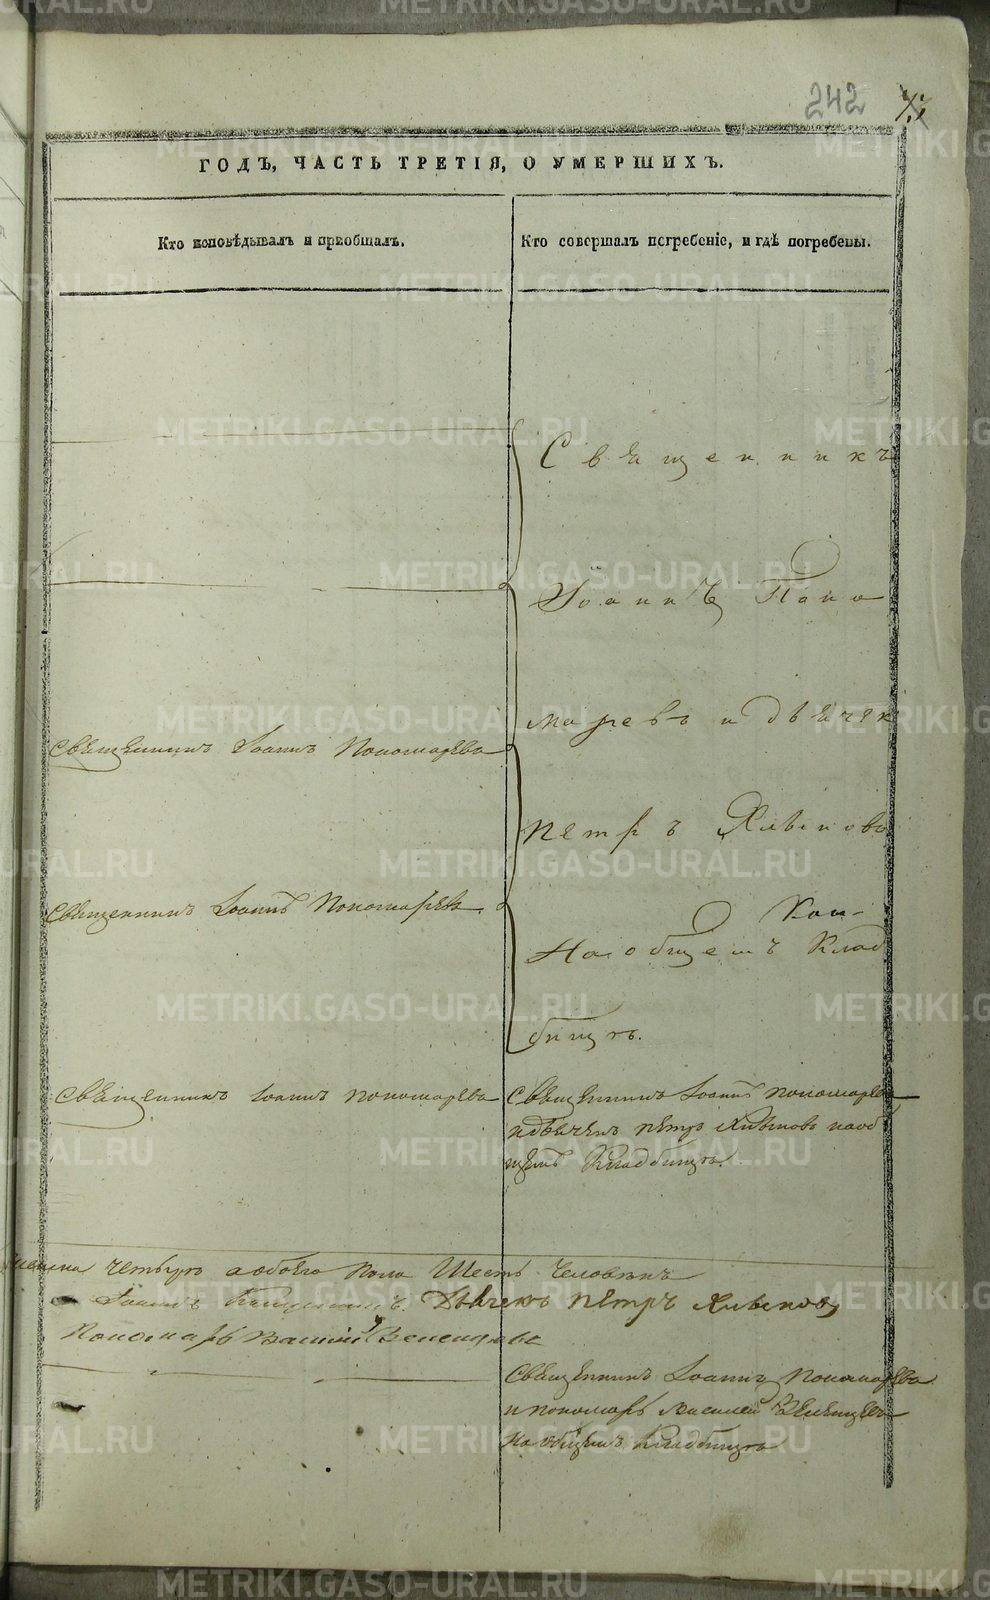 242
ГОДЪ, ЧАСТЬ ТРЕТІЯ, О УМЕРШИХЪ.
Кто исповѣдывалъ и пріобщалъ.
Кто совершалъ погребеніе, и гдѣ погребены.
Священникъ
Іоаннъ Поно
маревъ и дьячек
Священникъ Іоаннъ Пономаревъ
Петръ
Священникъ Іоаннъ Пономаревъ
На общемъ Клад
бищѣ.
Священникъ Іоаннъ Пономаревъ
Священникъ Іоаннъ Пономаревъ
и дьячекъ Петръ на об
щемъ Кладбищѣ.
четыре а обоего пола Шесть Человѣкъ
Іоаннъ Дьячекъ Петръ
Пономарь Василій
Священникъ Іоаннъ Пономаревъ
и пономарь Василей
на общемъ Кладбищѣ
METRIKI.GASO-URAL.RU